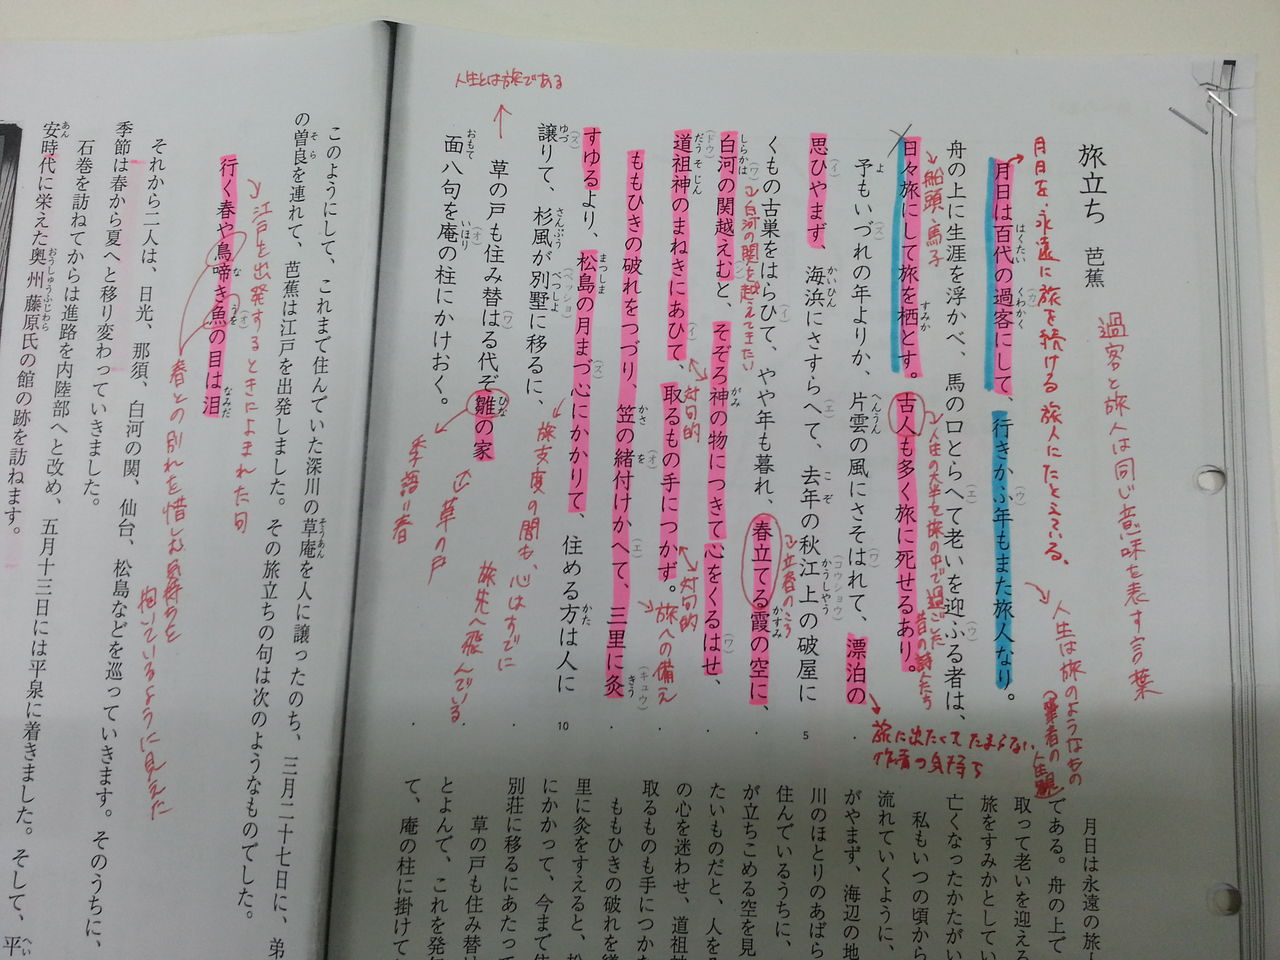 旅立ち 芭蕉
過客と旅人は同じ意味を表す言葉
月日を、永遠に旅を続ける旅人にたとえている。
月日は百代の過客にして、行きかふ年もまた旅人なり。
人生は旅のようなもの
(筆者の人生観)
舟の上に生涯を浮かべ、馬の口とらへて老いを迎ふる者は、
船頭・馬子
日々旅にして旅を栖とす。古人も多く旅に死せるあり。
人生の大半を旅の中で過ごした
昔の詩人たち
予もいづれの年よりか、片雲の風にさそはれて、漂泊の
旅に出たくてたまらない
作者の気持ち
思ひやまず、海浜にさすらへて、去年の秋江上の破屋に
くもの古巣をはらひて、やや年も暮れ、春立てる霞の空に、
立春のころ
白河の関を越えてみたい
白河の関越えむと、そぞろ神の物につきて心をくるはせ、
対句的
道祖神のまねきにあひて、取るもの手につかず。
対句的
旅への備え
ももひきの破れをつづり、笠の緒付けかへて、三里に灸
すゆるより、松島の月まづ心にかかりて、住める方は人に
譲りて、杉風が別墅に移るに、
旅支度の間も、心はすでに
旅先へ飛んでいる
人生とは旅である
草の戸も住み替はる代ぞ雛の家
草の戸
季語＝春
面八句を庵の柱にかけおく。
5
10
月日は永遠の旅人
である。舟の上で
取って老いを迎える
旅をすみかとしてい
亡くなったかたがい
私もいつの頃から
流れていくように、
がやまず、海辺の地
川のほとりのあばら
住んでいるうちに、
が立ちこめる空を見
たいものだと、人を
の心を迷わせ、道祖神
取るものも手につかな
ももひきの破れを繕
里に灸をすえると、松
にかかって、今まで住
別荘に移るにあたって
草の戸も住み替は
とよんで、これを発句
て、庵の柱に掛けて
このようにして、これまで住んでいた深川の草庵を人に譲ったのち、三月二十七日に、弟
の曽良を連れて、芭蕉は江戸を出発しました。その旅立ちの句は次のようなものでした。
江戸を出発するときによまれた句
行く春や鳥啼き魚の目は泪
春との別れを惜しむ気持ちを
抱いているように見えた
それから二人は、日光、那須、白河の関、仙台、松島などを巡っていきました。そのうちに、
季節は春から夏へと移り変わっていきました。
石巻を訪ねてからは進路を内陸部へと改め、五月十三日には平泉に着きました。そして、平
安時代に栄えた奥州藤原氏の館の跡を訪ねます。